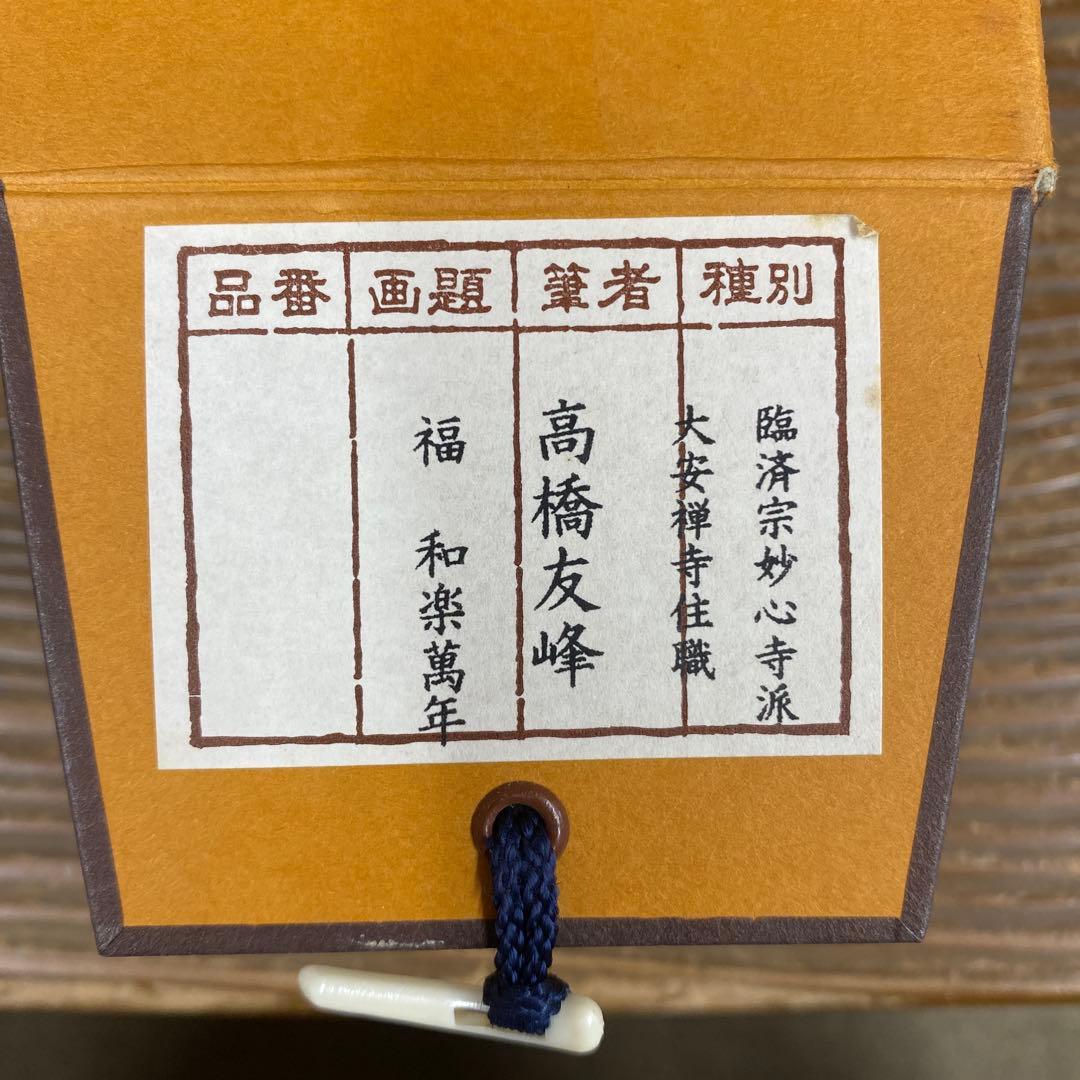 種別
臨済宗妙心寺派
大安禅寺住職
筆者
高橋友峰
画題
福 和楽萬年
品番